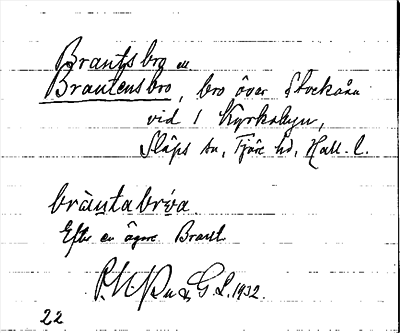 Brantsbro el.
Brantensbro, bro över Stockaån
vid 1 Kyrkobyn,
Släps sn, Fjäre hd, Hall. l.
bràntabrẃa
Efter en ägare Brant.
G. L. 1932.
22